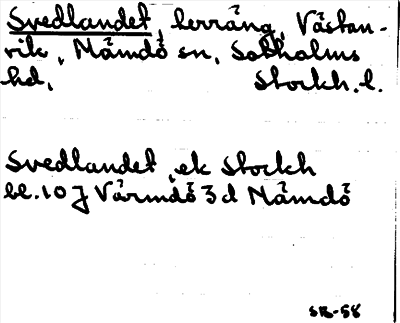 Svedlandet, terräng, Västan-
vik, Nämdö sn, Sotholms
hd, Stockh. l.
Svedlandet, ek Stockh
bl. 10 J Värmdö 3d Nämdö
SB-58